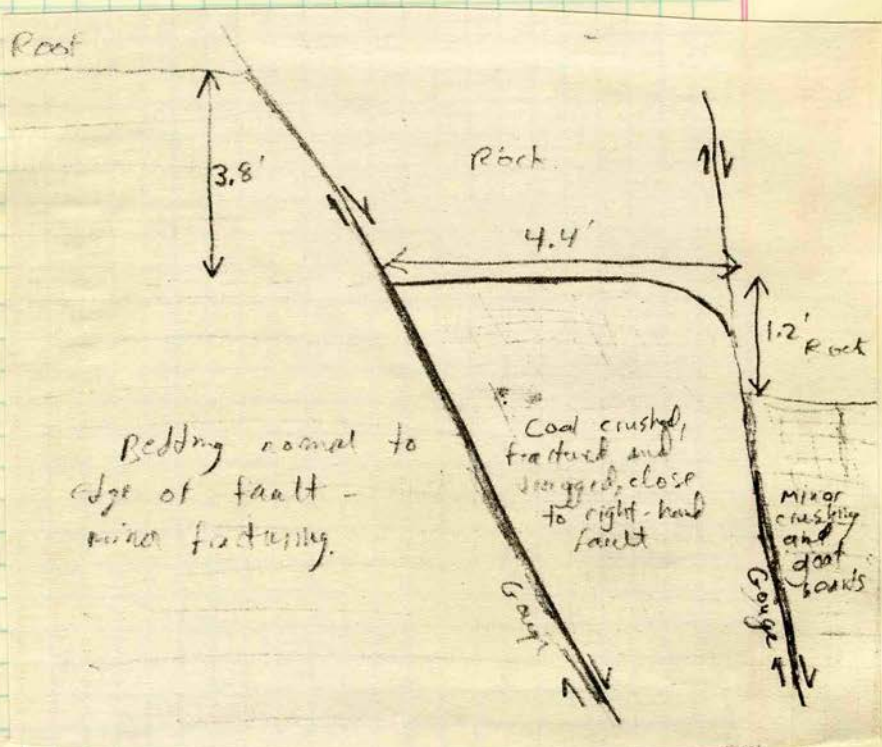 Roof
3.8'
Rock
4.4'
1.2'
Rock
Bedding normal to
edge of fault -
minor fracturing.
Coal crushed,
fractured and
dragged, close
to right-hand
fault
Minor
crushing
and
goat
beards
Gouge
Gouge